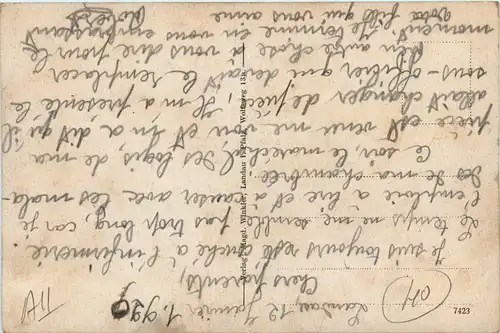 Landau 12 Janvier 1.920
Chers parents,
Je suis toujours resté couché à l'infirmerie.
Le temps ne me semble pas trop long, car je
l'emploie à lire et à causer avec les mala-
des de ma chambrée.
Ce soir, le maréchal des logis de ma
pièce est venu me voir et m'a dit qu'il
allait changer de pièce. Il m'a présenté le
sous-officier qui devait le remplacer.
Rien autre chose à vous dire pour le
moment. Je termine en vous embrassant
Votre fils qui vous aime
Verlag: Magd. Winkler, Landau i. Pfalz, Wolfsweg 13a.
7423
AII